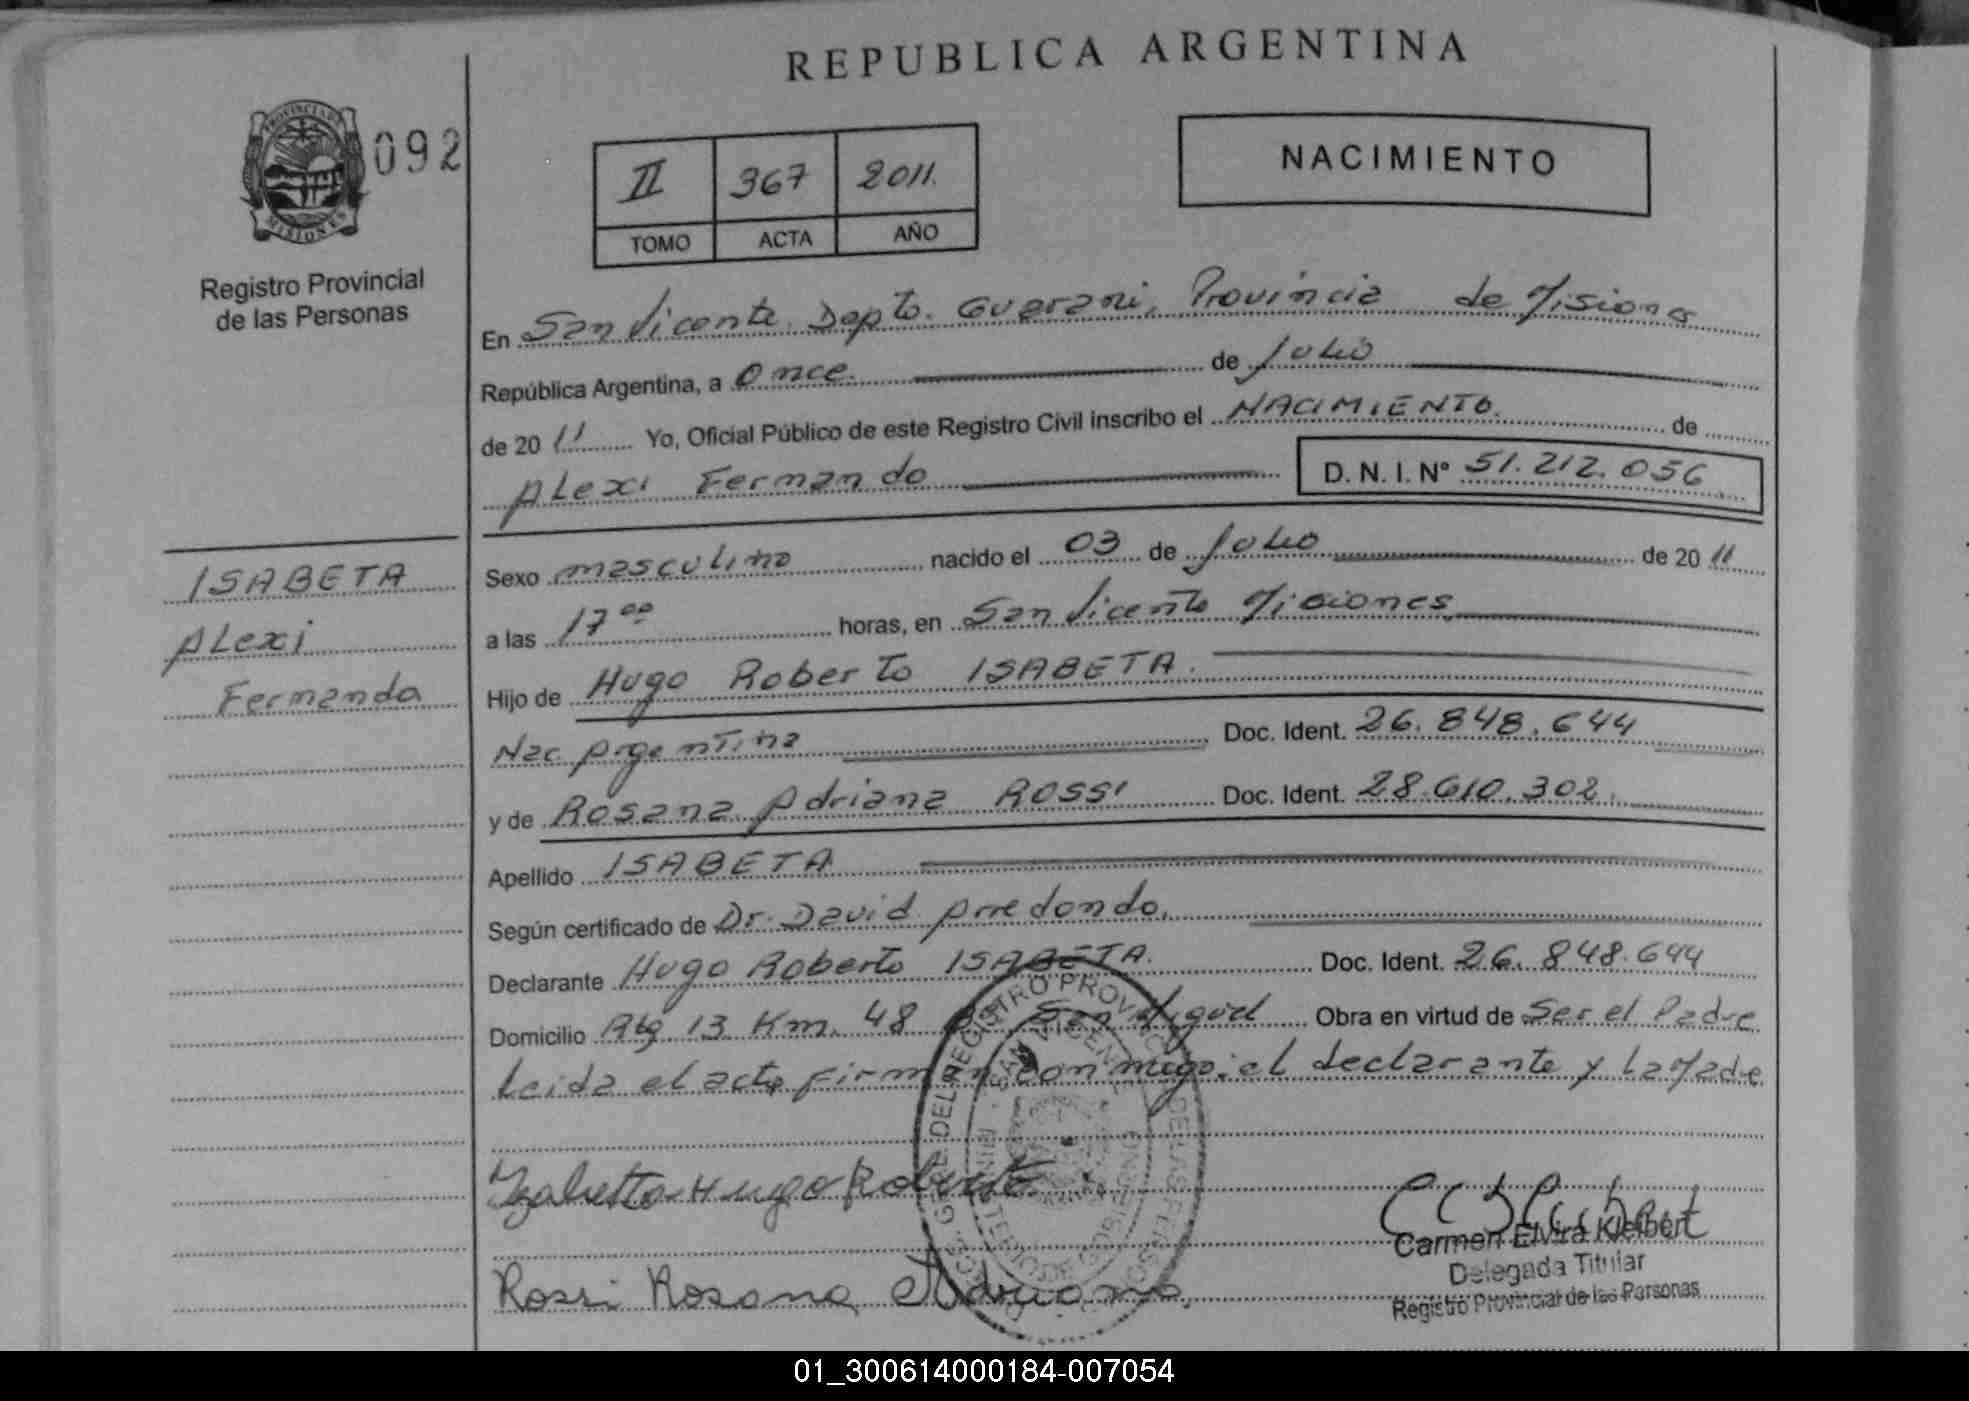 REPUBLICA ARGENTINA
PROVINCIA DE
MISIONES
092
Registro Provincial
de las Personas
II 367 2011.
TOMO ACTA AÑO
NACIMIENTO
En San Vicente, Depto. Guarani, Provincia de Misiones
República Argentina, a Once de Julio
de 2011 Yo, Oficial Público de este Registro Civil inscribo el NACIMIENTO de
Alexi Fernando D. N. I. Nº 51.212.056
ISABETA
Alexi
Fernando
Sexo masculino nacido el 03 de Julio de 2011
a las 17 00 horas, en San Vicente Misiones
Hijo de Hugo Roberto ISABETA.
Nac Argentina Doc. Ident. 26.848.644
y de Rosana Adriana ROSSI Doc. Ident. 28.610.302.
Apellido ISABETA
Según certificado de Dr. David Arredondo,
Declarante Hugo Roberto ISABETA. Doc. Ident. 26.848.644
Domicilio Rtg 13 Km. 48 San Miguel Obra en virtud de Ser el Padre
Leida el acta firman conmigo: el declarante y la Madre
REGISTRO PROVINCIAL DE LAS PERSONAS
SAN VICENTE
MINISTERIO DE GOBIERNO
Yzabetta Hugo Roberto
Rossi Rosana Adriana
Carmen Elvira Kleibert
Delegada Titular
Registro Provincial de las Personas
01_300614000184-007054